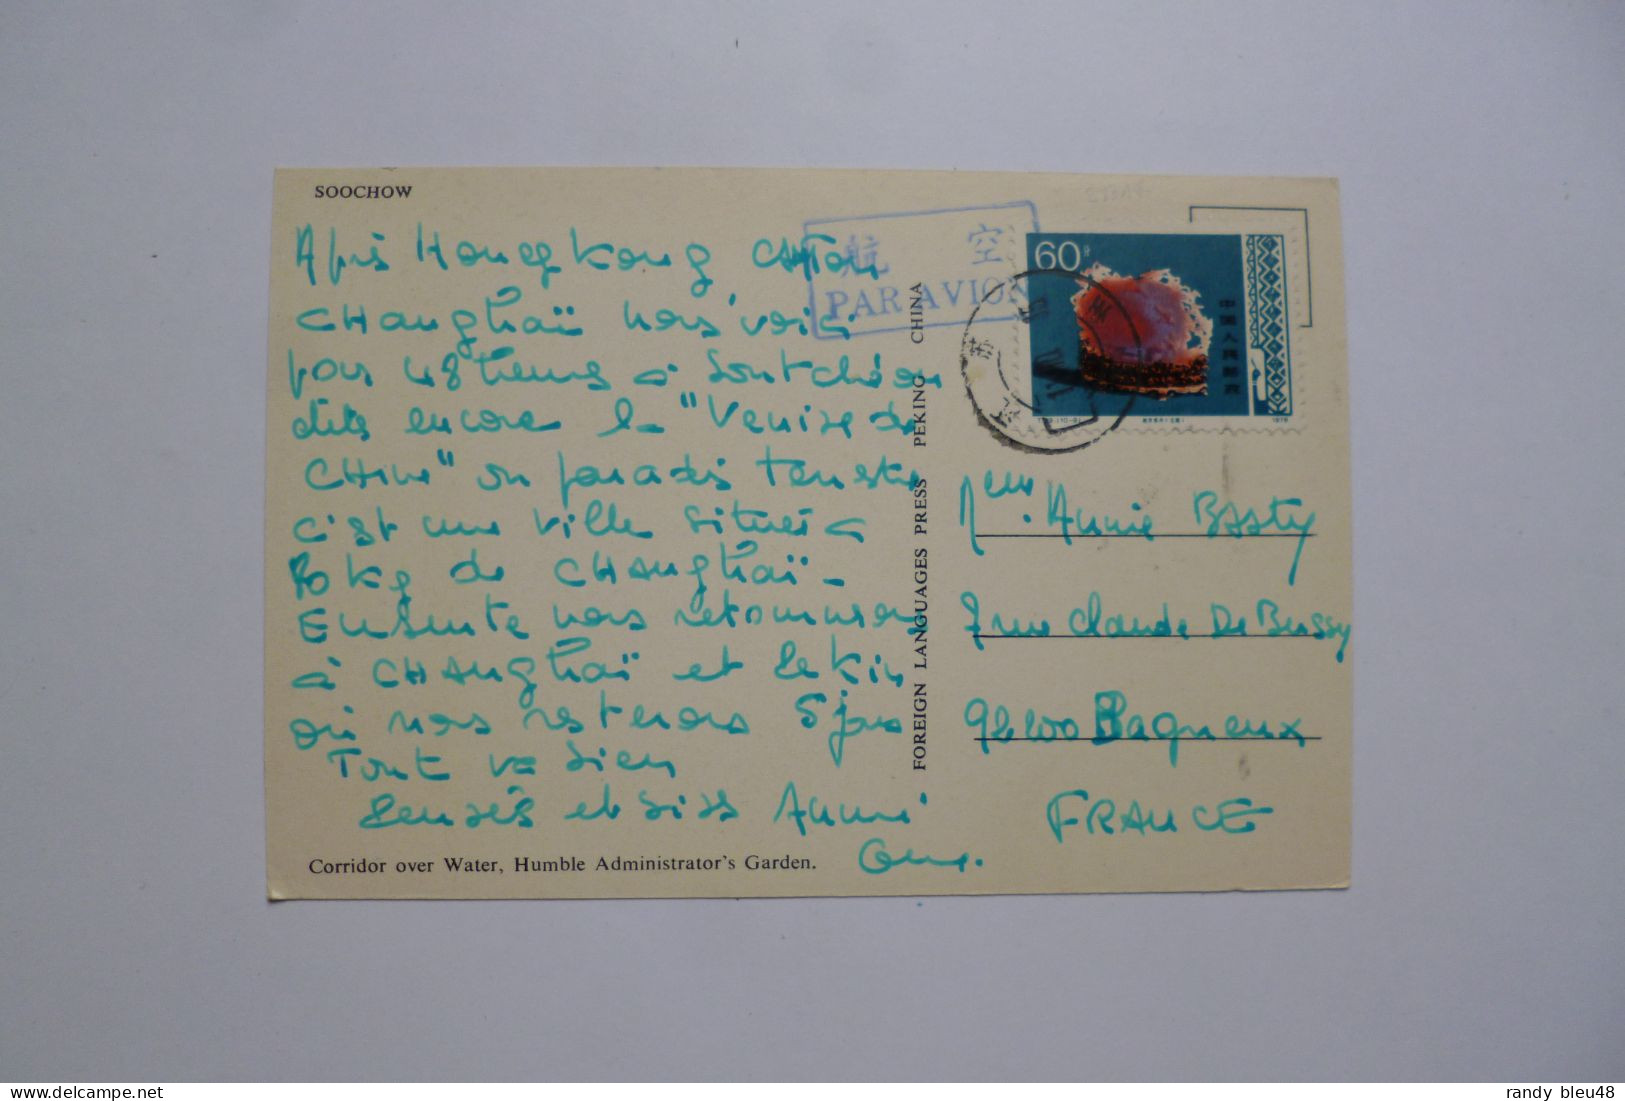 SOOCHOW
Après Hong Kong CANTON
CHanghaï nous voici
pour 48 heures à Soutchéou
dite encore la "Venise de
CHine" ou paradis terrestre
c'est une ville située à
80 kg de CHAnghaï -
Ensuite nous retournerons
à CHAnghaï et Pekin
où nous resterons 5 jours
Tout va bien
Pensées et bises
Corridor over Water, Humble Administrator's Garden.
FOREIGN LANGUAGES PRESS PEKING CHINA
航 空
PAR AVION
60分
中国人民邮政
1978
Annie Basty
7 rue Claude De Bussy
92200 Bagneux
FRANCE
randy bleu48